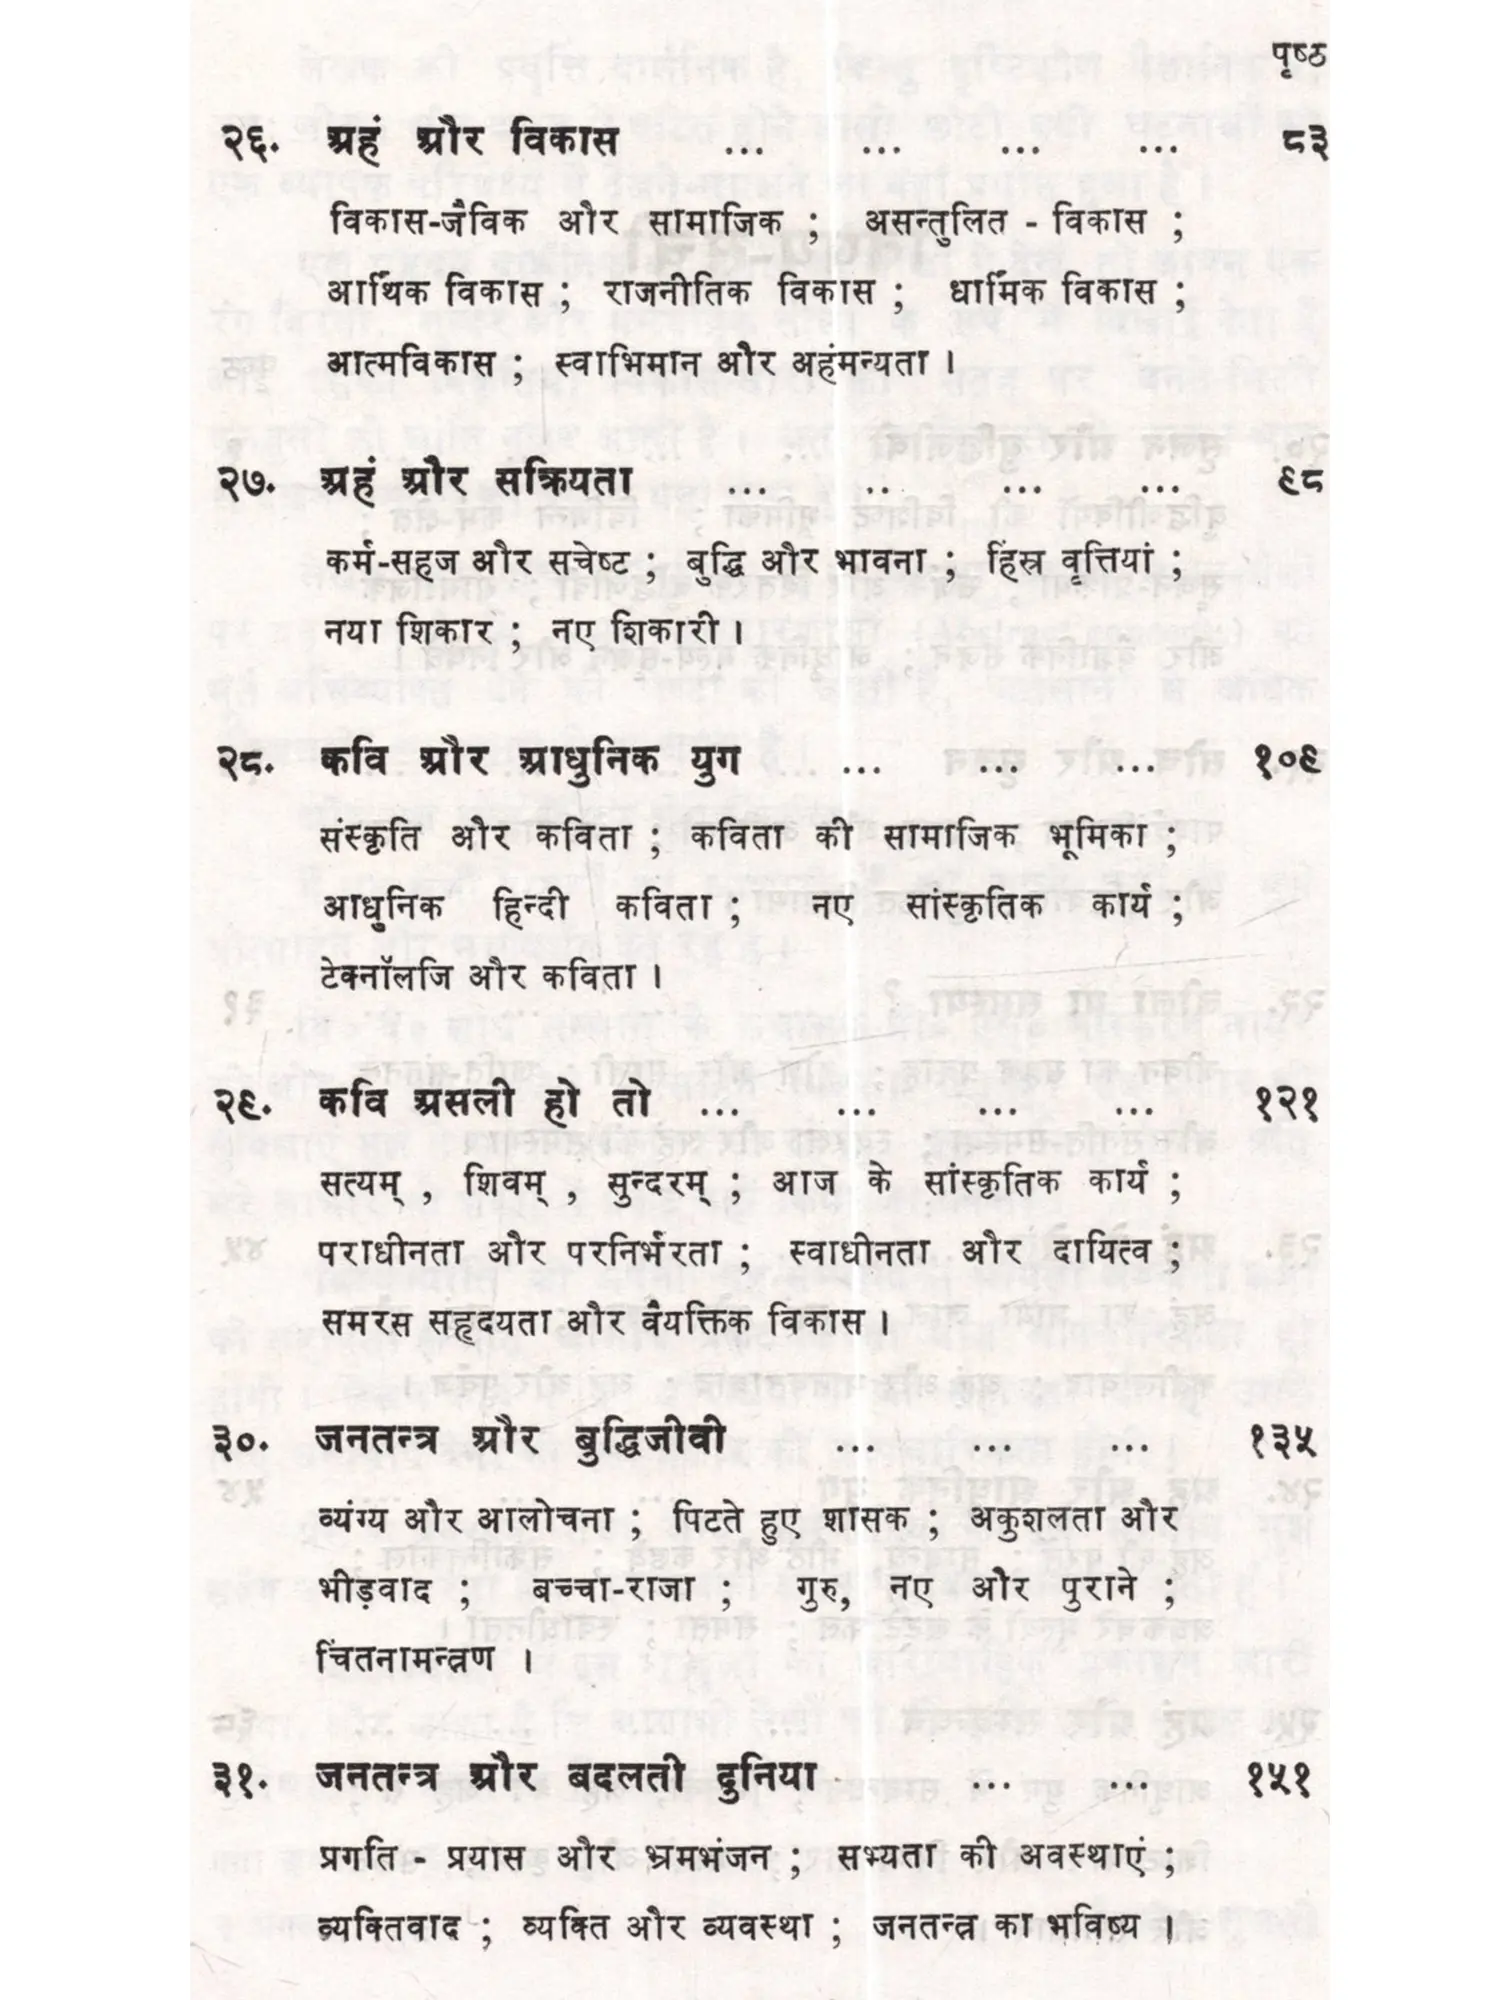 पृष्ठ
२६. अहं और विकास ... ... ... ... ८३
विकास-जैविक और सामाजिक ; असन्तुलित - विकास ;
आर्थिक विकास ; राजनीतिक विकास ; धार्मिक विकास ;
आत्मविकास ; स्वाभिमान और अहंमन्यता ।
२७. अहं और सक्रियता ... .. ... ... ९८
कर्म-सहज और सचेष्ट ; बुद्धि और भावना ; हिंस्र वृत्तियां ;
नया शिकार ; नए शिकारी ।
२८. कवि और आधुनिक युग ... ... ... १०९
संस्कृति और कविता ; कविता की सामाजिक भूमिका ;
आधुनिक हिन्दी कविता ; नए सांस्कृतिक कार्य ;
टेक्नॉलजि और कविता ।
२९. कवि असली हो तो ... ... ... ... १२१
सत्यम् , शिवम् , सुन्दरम् ; आज के सांस्कृतिक कार्य ;
पराधीनता और परनिर्भरता ; स्वाधीनता और दायित्व ;
समरस सहृदयता और वैयक्तिक विकास ।
३०. जनतन्त्र और बुद्धिजीवी ... ... ... १३५
व्यंग्य और आलोचना ; पिटते हुए शासक ; अकुशलता और
भीड़वाद ; बच्चा-राजा ; गुरु, नए और पुराने ;
चिंतनामन्त्रण ।
३१. जनतन्त्र और बदलती दुनिया ... ... १५१
प्रगति - प्रयास और भ्रमभंजन ; सभ्यता की अवस्थाएं ;
व्यक्तिवाद ; व्यक्ति और व्यवस्था ; जनतन्त्र का भविष्य ।